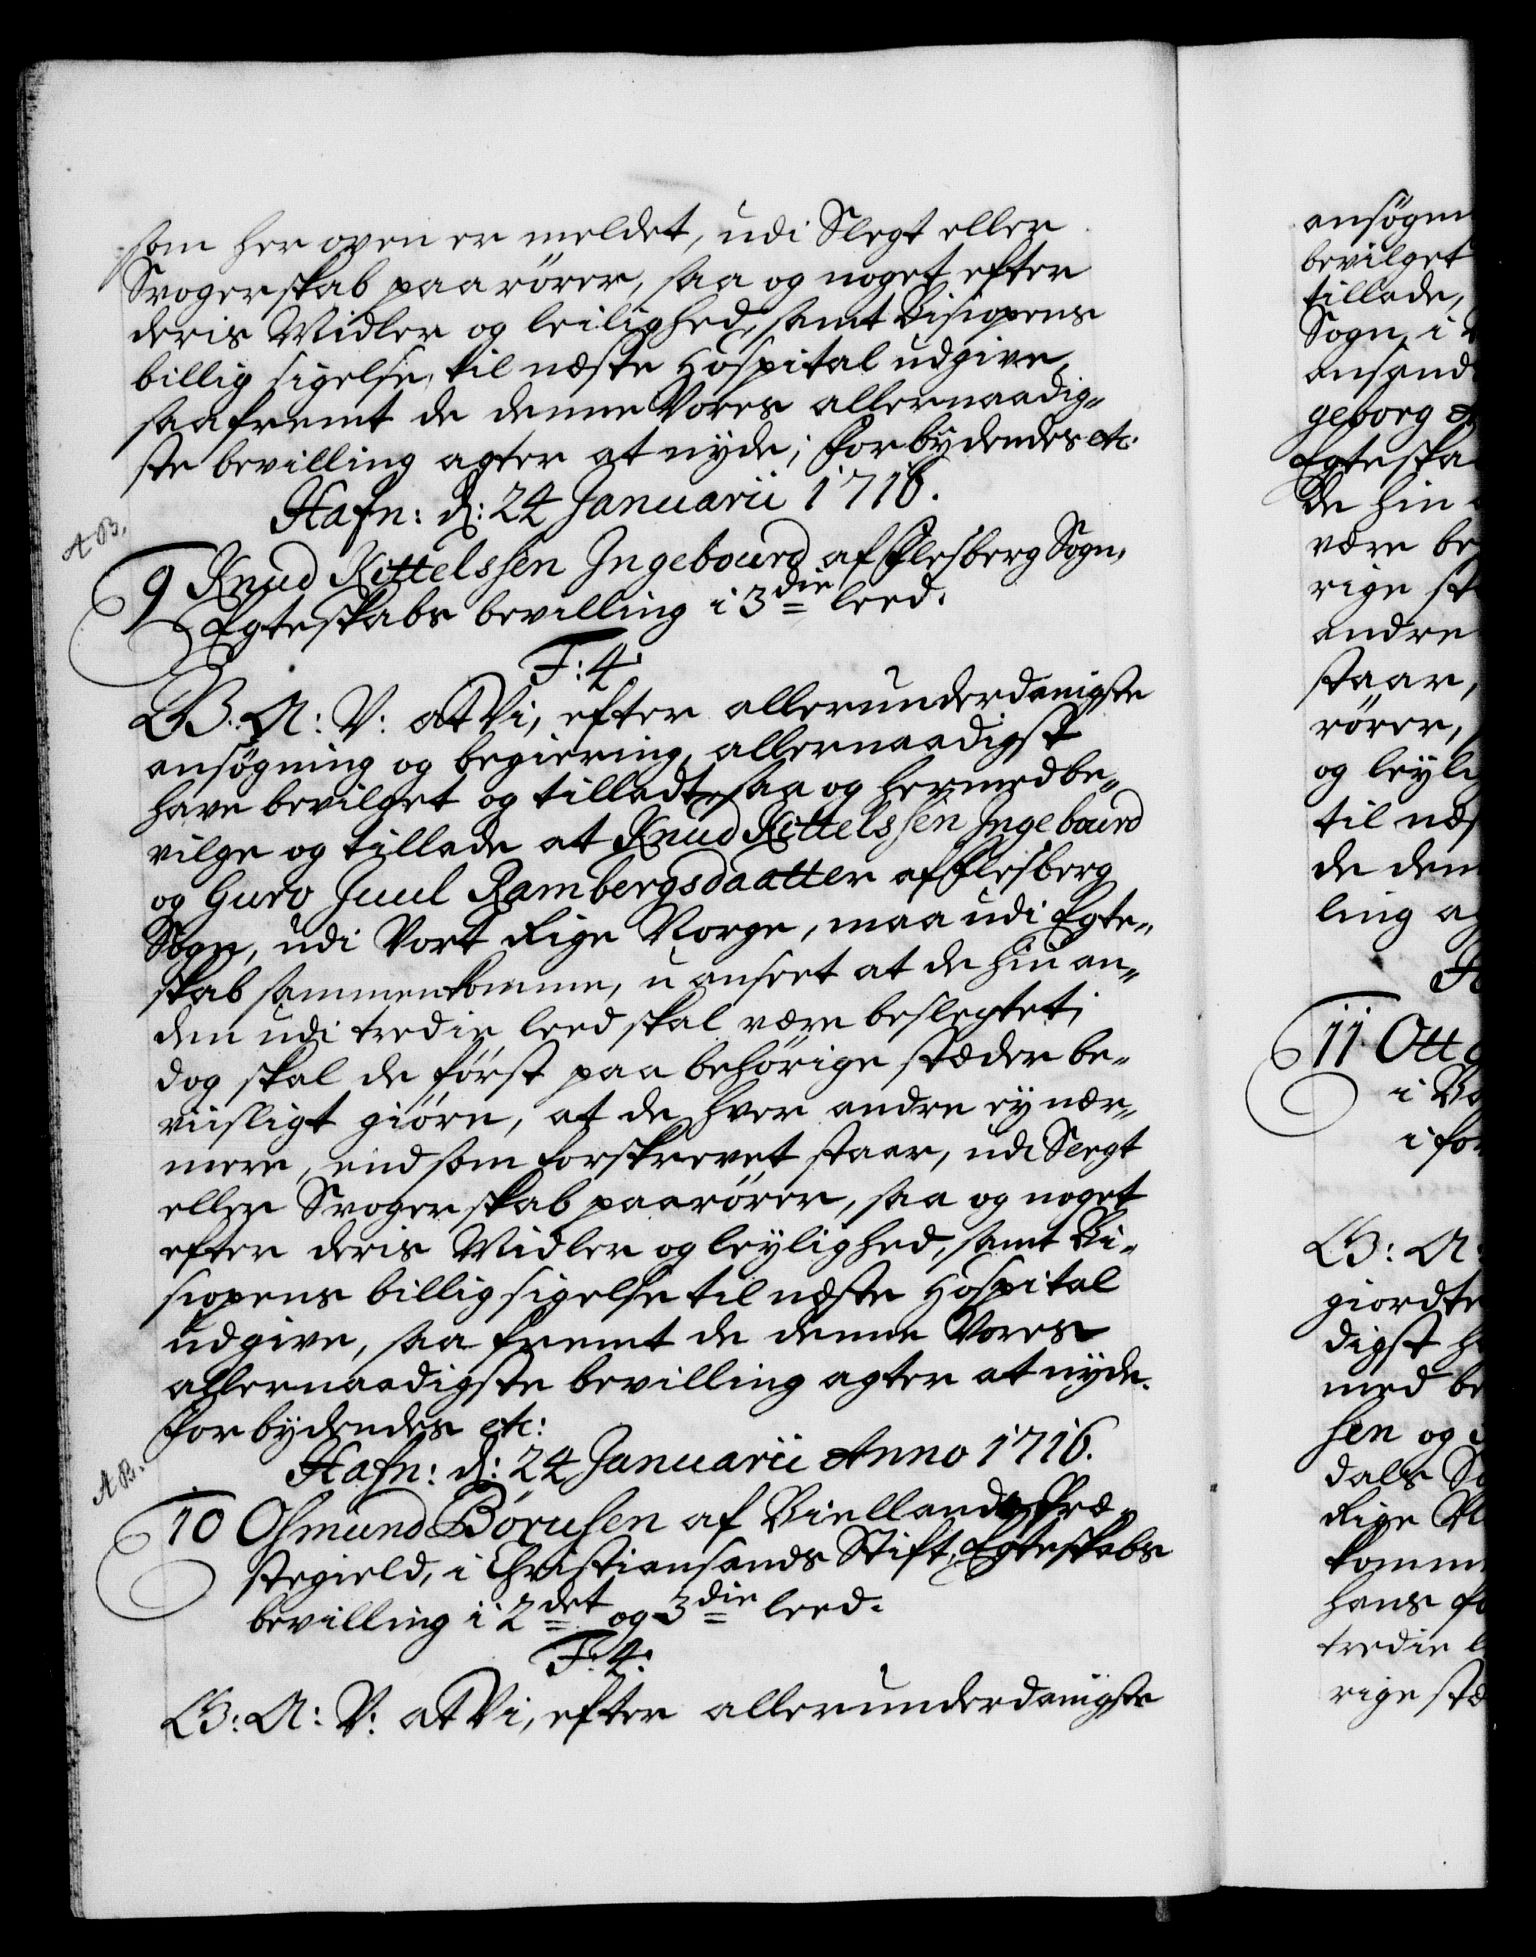 som her oven er meldet, udi Slegt eller
Svogerskab paarører, saa og noget efter
deris Midler og leilighed, samt Bispens
billig sigelse, til næste Hospital udgive,
saafremt de denne Vores allernaadig-
ste bevilling agter at nyde; Forbydendes etc:
Hafn: d: 24 Januarii 1716.
A.B.
9 Knud Kittelssen Ingebourd af Flesberg Sogn,
Egteskabs bevilling i 3die leed.
F: 4.
G: A: V: at Vi, efter allerunderdanigste
ansøgning og begiering, allernaadigst
have bevilget og tilladt, saa og hermed be-
vilge og tillade at Knud Kittelssen Ingebourd
og Guro Juul Rambergsdaatter af Flesberg
Sogn, udi Vort Rige Norge, maa udi Egte-
skab sammenkomme, uanseet at de hin an-
den udi tredie leed skal være beslegtet;
dog skal de først paa behørige stæder be-
viisligt giøre, at de hver andre ey nær-
mere, end som forskrevet staar, udi Slegt
eller Svogerskab paarører, saa og noget
efter deris Midler og leylighed, samt Bi-
spens billig sigelse til næste Hospital
udgive, saa fremt de denne Vores
allernaadigste bevilling agter at nyde.
Forbydendes etc:
Hafn: d: 24 Januarii Anno 1716.
A.B.
10 Osmund Børusen af Biellands Præ-
stegield, i Christiansands Stift, Egteskabs
bevilling i 2det og 3die leed.
F: 4.
G: A: V: at Vi, efter allerunderdanigste
ansøgn
bevilget
tillade,
Sogn, i
ansand
geborg
Egteska
de hin
være be
rige st
andre
staar,
rører,
og leyli
til næs
de den
ling ag
11 Otte
i
i for
G: A:
giordte
digst h
med be
sen og
dals S
Rige N
komm
hans fo
tredie l
rige stæ